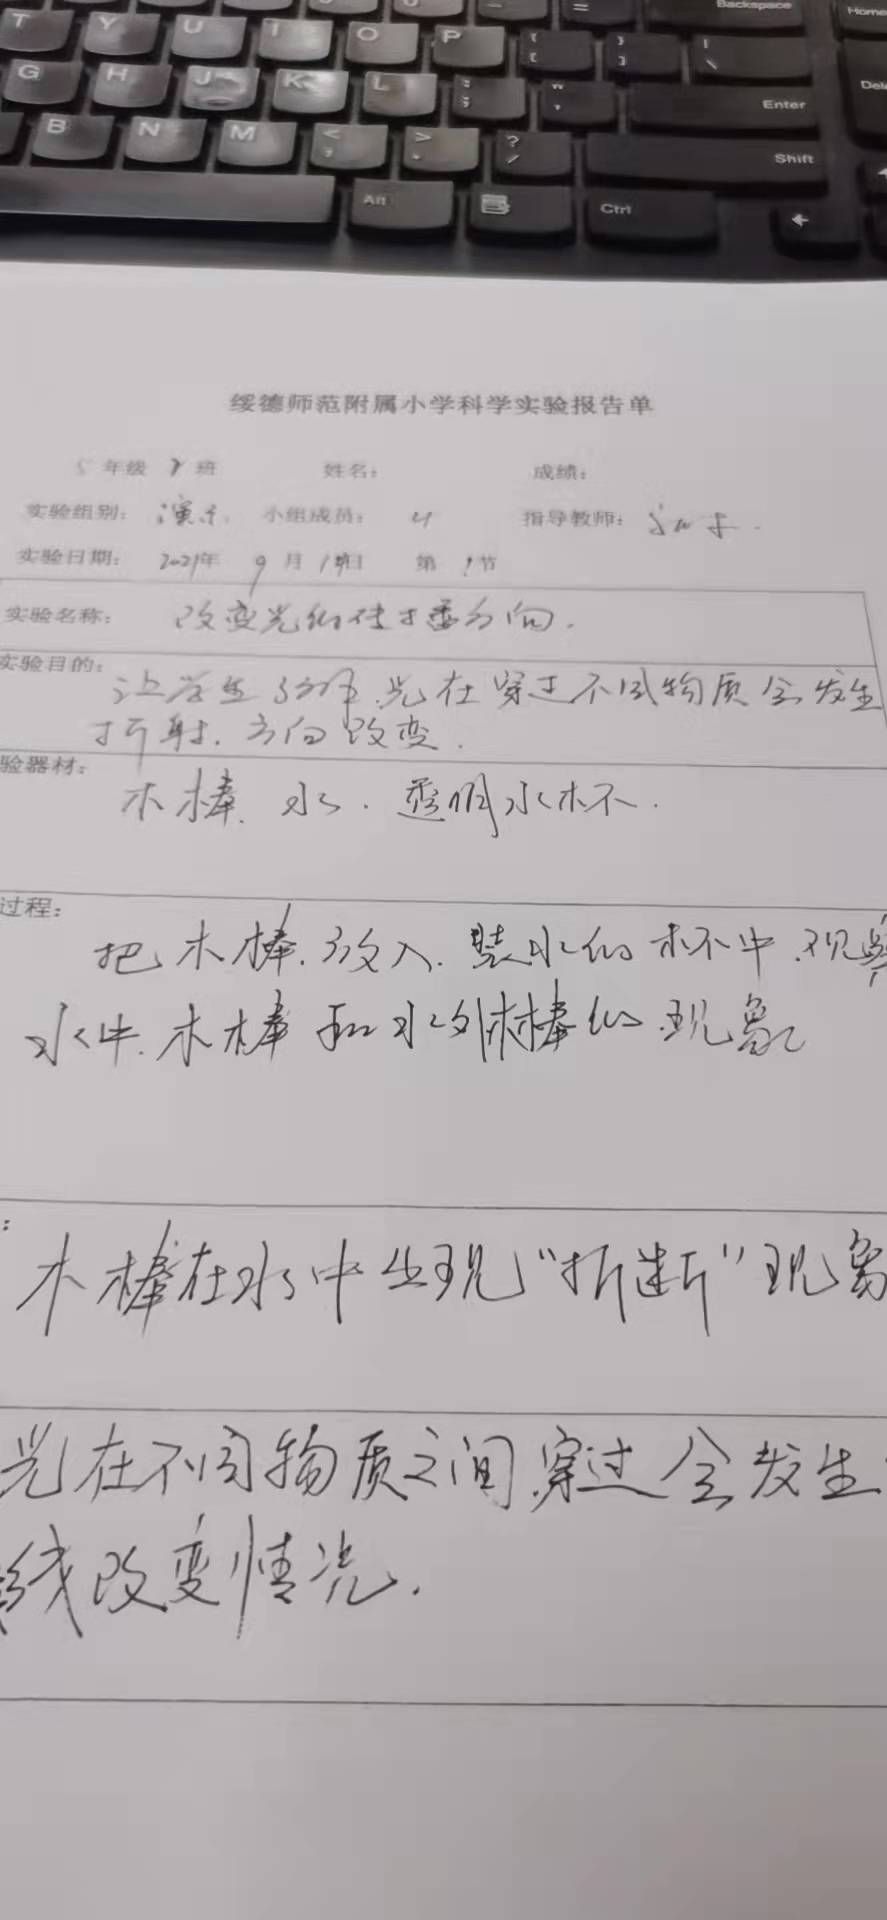 Backspace
Home
T Y U I O P
G H J K L Enter
B N M Shift
Alt Ctrl
绥德师范附属小学科学实验报告单
5 年级 班 姓名: 成绩:
实验组别: 演示 小组成员: 指导教师:
实验日期: 2021年 9 月 日 第 节
实验名称: 改变光的传播方向.
实验目的:
让学生了解光在穿过不同物质会发生
折射.方向改变.
验器材:
木棒. 水. 透明水杯.
过程:
把木棒.放入.装水的 杯中.观察
水中.木棒和水外木棒的.现象
:
木棒在水中出现"折断"现象
光在不同物质之间穿过会发生
线改变情况.